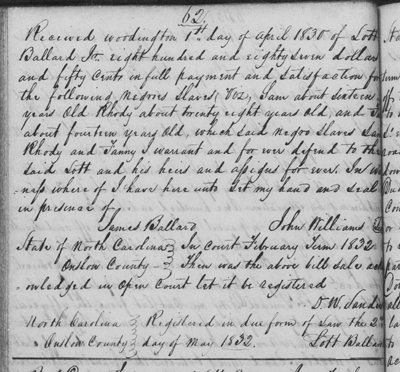 62
Received woodington 1st day of April 1830 of Lott
Ballard Jr. eight hundred and eighty seven dollars
and fifty cents in full payment and Satisfaction for
the following Negroes Slaves, Viz, Sam about sixteen
years Old Rhody about twenty eight years Old, and
about fourteen years Old, which Said Negro Slaves Sam
Rhody and Fanny I warrant and for ever defend to the
Said Lott and his heirs and assigns for ever. In wit
ness where of I have here unto Set my hand and Seal
in presence of
James Ballard John Williams
State of North Carolina In Court February Term 1832
Onslow County Then was the above bill sale ack
nowledged in Open Court let it be registered
D. W. Sanders
North Carolina Registered in due form of Law the 2
Onslow County day of May 1832. Lott Ballard